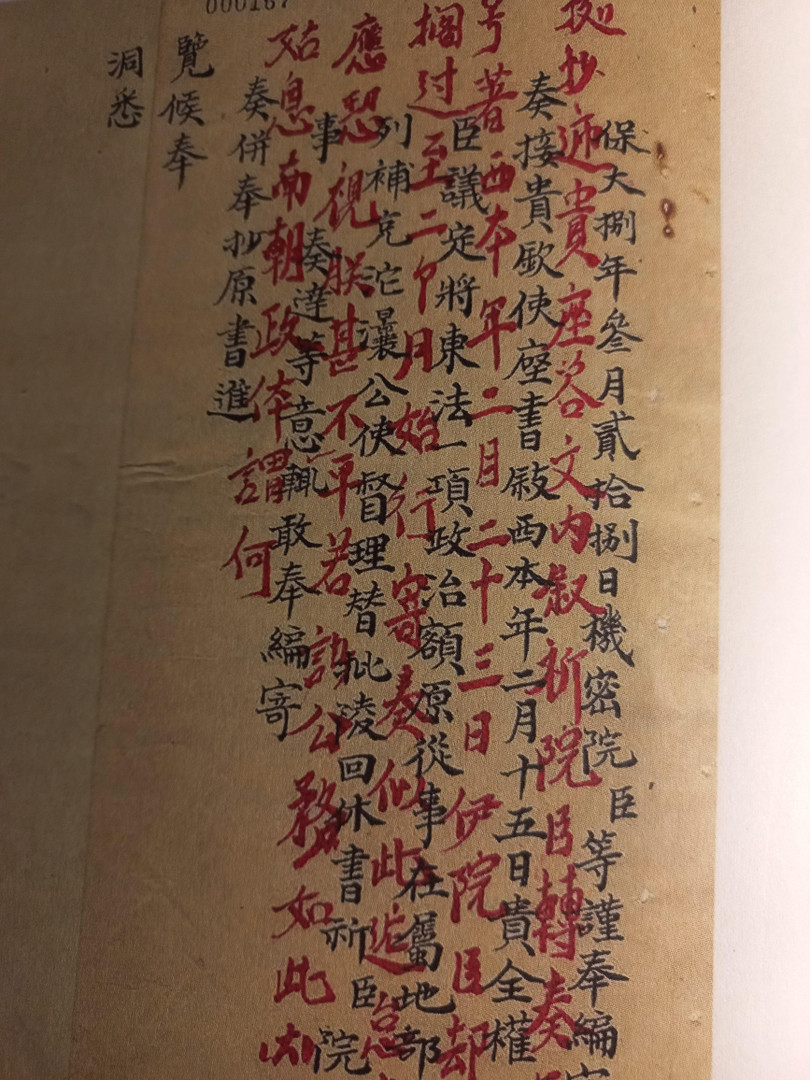 000157
保大捌年叁月貳拾捌日機密院臣等謹奉編寄
奏接貴欽使座書敍西本年二月十五日貴全權
臣議定將東法一項政治額原從事在屬地部
列補充沱灢公使督理替枇淩回休書祈臣院
事 奏達等意輒敢奉編寄
奏併奉抄原書進
覽候奉
洞悉
抄遞貴座答文內叙祈院臣轉奏
号著西本年二月二十三日伊院臣却
擱过至二月始行寄奏似此延怠
應恐視朕甚不平若公務如此
姑息南朝政体謂何